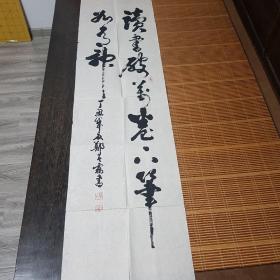 讀書破萬卷下筆
如有神
丁丑年 鄭 書